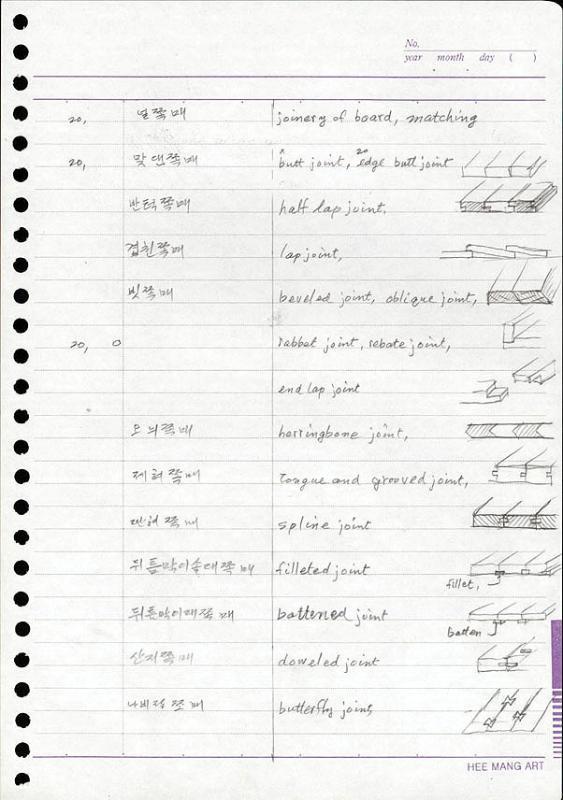 No.
year month day ( )
20, 널쪽매 joinery of board, matching
20, 맞댄쪽매 butt joint, 20 edge butt joint
반턱쪽매 half lap joint,
겹친쪽매 lap joint,
빗쪽매 beveled joint, oblique joint,
20, 0 rabbet joint, rebate joint,
end lap joint
오늬쪽매 herringbone joint,
제혀쪽매 tongue and grooved joint,
딴혀쪽매 spline joint
뒤틈막이솔대쪽매 filleted joint
fillet,
뒤틈막이대쪽매 battened joint
batten
산지쪽매 doweled joint
나비 쪽매 butterfly joint
HEE MANG ART